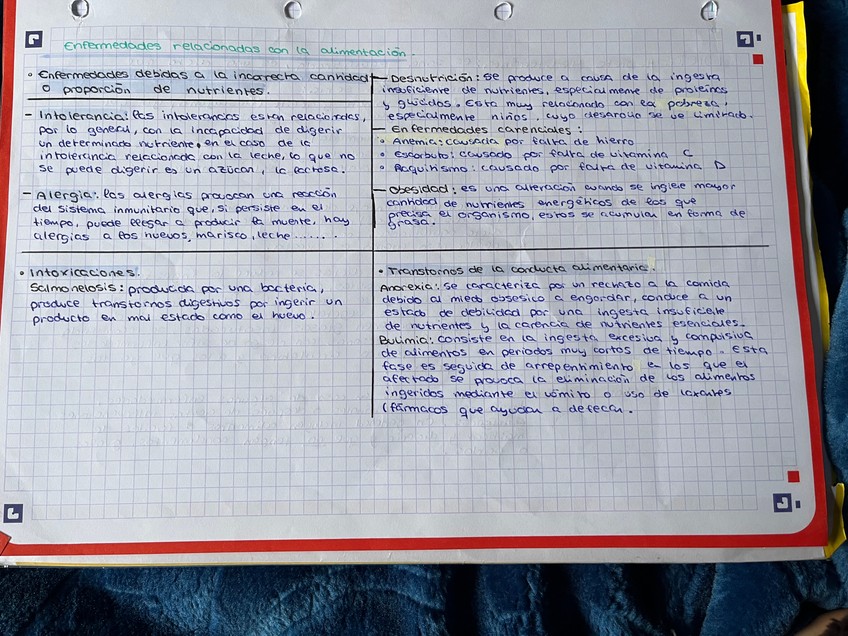 Enfermedades relacionadas con la alimentación.
• Enfermedades debidas a la incorrecta cantidad
o proporción de nutrientes.
- Intolerancia: las intolerancias estan relacionadas,
por lo general, con la incapacidad de digerir
un determinado nutriente, en el caso de la
intolerancia relacionada con la leche, lo que no
se puede digerir es un azúcar, la lactosa.
- Alergia: las alergias provocan una reacción
del sistema inmunitario que, si persiste en el
tiempo, puede llegar a producir la muerte, hay
alergias a los huevos, marisco, leche.......
- Desnutrición: se produce a causa de la ingesta
insuficiente de nutrientes, especialmente de proteínas
y glúcidos. Esta muy relacionado con la pobreza,
especialmente niños, cuyo desarollo se ve limitado.
- Enfermedades carenciales:
• Anemia: causada por falta de hierro
• Escorbuto: causado por falta de vitamina C
• Raquitismo: causado por falta de vitamina D
- Obesidad: es una alteración cuando se ingiere mayor
cantidad de nutrientes energéticos de los que
precisa el organismo, estos se acumulan en forma de
grasa.
• Intoxicaciones.
Salmonelosis: producida por una bacteria,
produce transtornos digestivos por ingerir un
producto en mal estado como el huevo.
• Transtornos de la conducta alimentaria.
Anorexia: se caracteriza por un rechazo a la comida
debido al miedo obsesico a engordar, conduce a un
estado de debilidad por una ingesta insuficiente
de nutrientes y la carencia de nutrientes esenciales.
Bulimia: consiste en la ingesta excesiva y compulsiva
de alimentos en periodos muy cortos de tiempo. Esta
fase es seguida de arrepentimiento en los que el
afectado se provoca la eliminación de los alimentos
ingeridos mediante el vómito o uso de laxantes
(fármacos que ayudan a defecar.